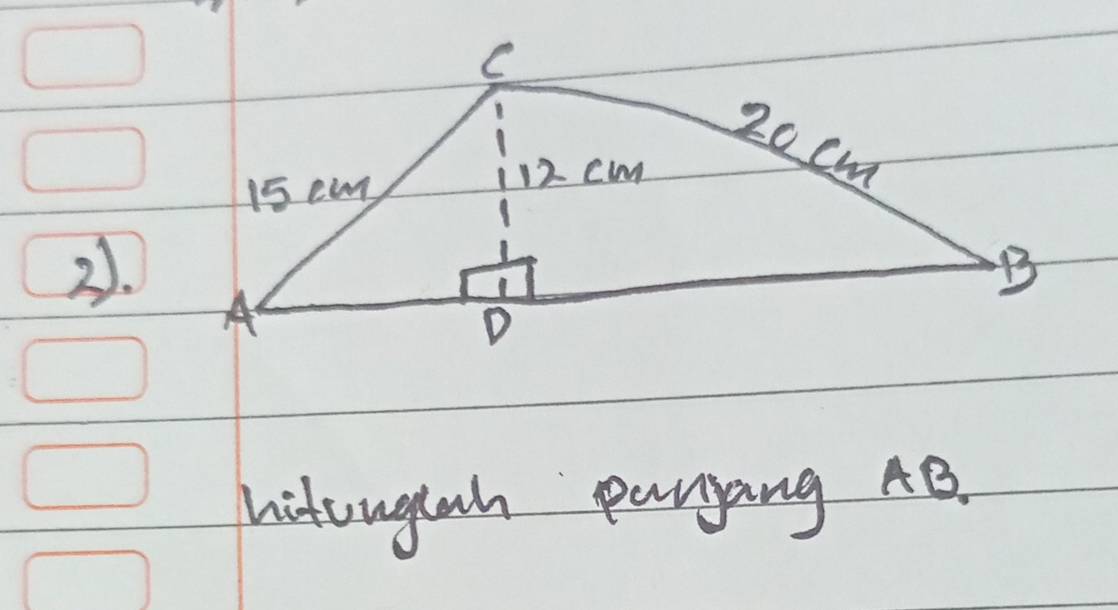 C
20 cm
15 cm
12 cm
2).
A
D
B
hitunglah panjang AB.